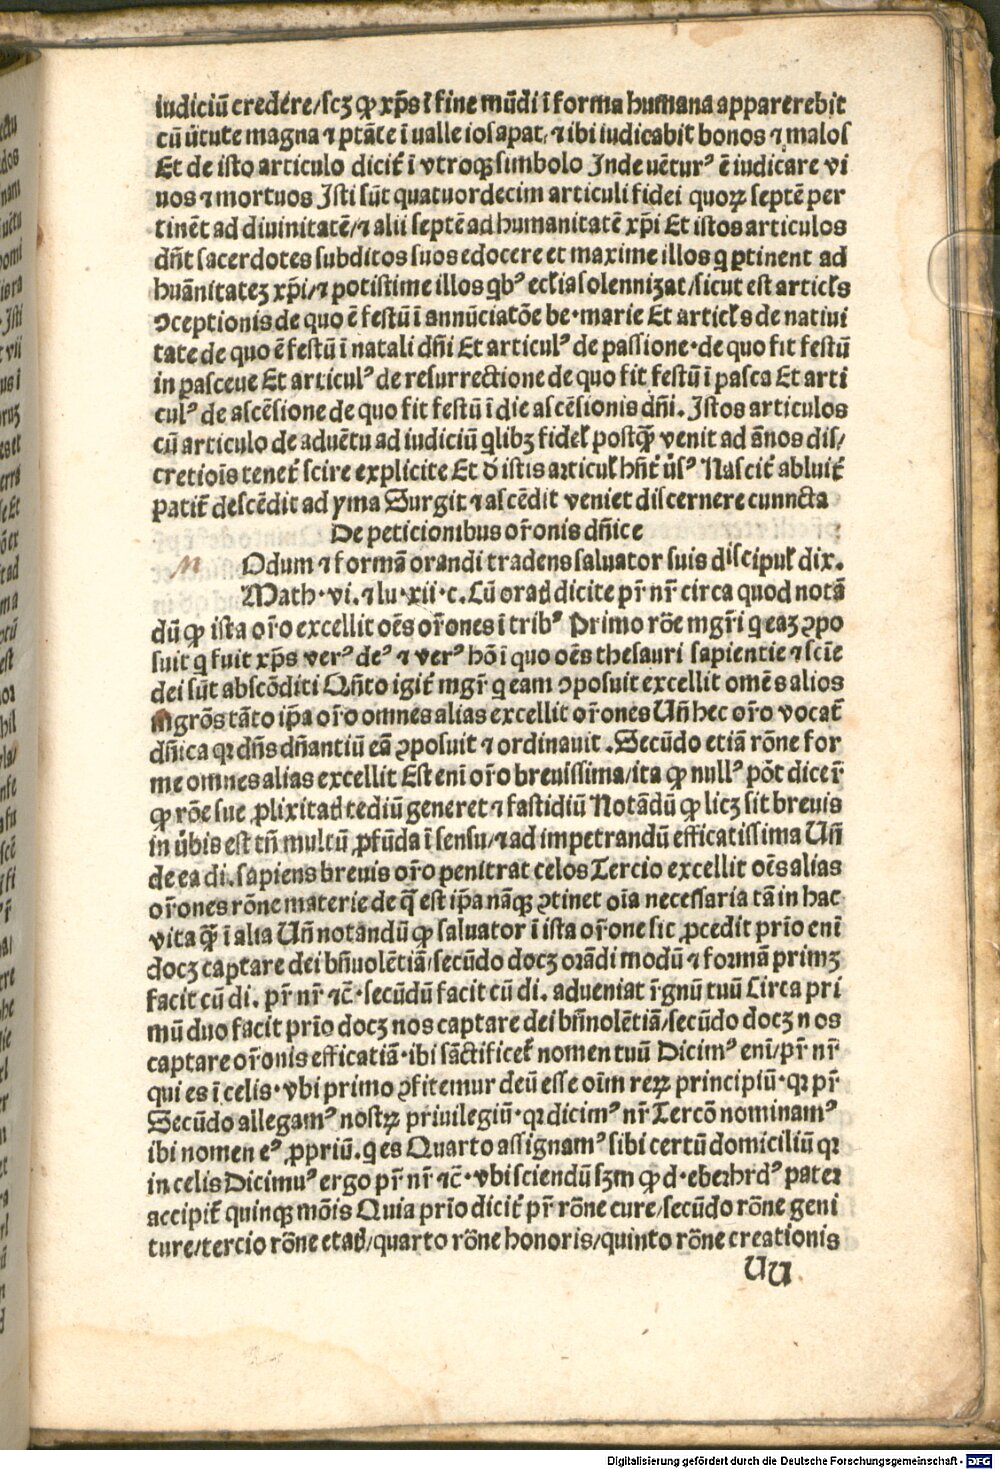 iudiciū credere/scꝫ ꝙ xp̄s ī fine mūdi ī forma humana apparerebit
cū v̓tute magna ⁊ ptāte ī ualle iosapat/⁊ ibi iudicabit bonos ⁊ malos
Et de isto articulo dicit̄ ī vtroqꝫ simbolo Inde uēturꝰ ē iudicare vi
uos ⁊ mortuos Isti sūt quatuordecim articuli fidei quoꝝ septē per
tinēt ad diuinitatē/⁊ alii septē ad humanitatē xp̄i Et istos articulos
dn̄t sacerdotes subditos suos edocere et maxime illos q ꝑtinent ad
huānitateꝫ xp̄i/⁊ potissime illos qbꝰ ecl̄ia solennizat/sicut est articl̄s
ↄceptionis de quo ē festū ī annūciatōe be·marie Et articl̄s de natiui
tate de quo ē festū ī natali dn̄i Et articulꝰ de passione·de quo fit festū
in pasceue Et articulꝰ de resurrectione de quo fit festū ī pasca Et arti
culꝰ de ascēsione de quo fit festū ī die ascēsionis dn̄i. Istos articulos
cū articulo de aduētu ad iudiciū qlibꝫ fidel̄ postꝙ̄ venit ad ānos dis/
cretiois tenet̄ scire explicite Et d̓ istis articul̄ hn̄t v̓sꝰ Nascit̄ abluit̄
patit̄ descēdit ad yma Surgit ⁊ ascēdit veniet discernere cunncta
De peticionibus or̄onis dn̄ice
M Odum ⁊ formā orandi tradens saluator suis discipul̄ dix.
Math·vi.⁊ lu·xii·c. Cū orad dicite pr̄ nr̄ circa quod notā
dū ꝙ ista or̄o excellit oēs or̄ones ī tribꝰ Primo rōe mgr̄i q eaꝫ ꝯpo
suit q fuit xp̄s verꝰ deꝰ ⁊ verꝰ hō ī quo oēs thesauri sapientie ⁊ scīe
dei sūt abscōditi Qn̄to igit̄ mgr̄ q eam ↄposuit excellit omēs alios
mgrōs tāto ip̄a or̄o omnes alias excellit or̄ones Un̄ hec or̄o vocat̄
dn̄ica qꝛ dn̄s dn̄antiū eā ꝯposuit ⁊ ordinauit.Secūdo etiā rōne for
me omnes alias excellit Est eni or̄o breuissima/ita ꝙ nullꝰ pōt dicer̄
ꝙ rōe sue ꝓlixitad tediū generet ⁊ fastidiū Notādū ꝙ licꝫ sit breuis
in v̓bis est tn̄ multū ꝓfūda ī sensu/⁊ ad impetrandū efficatissima Un̄
de ea di.sapiens breuis or̄o penitrat celos Tercio excellit oēs alias
or̄ones rōne materie de q̄ est ip̄a nāqꝫ ꝯtinet oīa necessaria tā in hac
vita ꝙ̄ ī alia Un̄ notandū ꝙ saluator ī ista or̄one sic ꝓcedit prīo enī
docꝫ captare dei bn̄uolētiā/secūdo docꝫ orādi modū ⁊ formā primꝫ
facit cū di. pr̄ nr̄ ⁊c̄·secūdū facit cū di. adueniat r̄gnū tuū Circa pri
mū duo facit prīo docꝫ nos captare dei bn̄uolētiā/secūdo docꝫ nos
captare or̄onis efficatiā·ibi sāctificet̄ nomen tuū Dicimꝰ enī/pr̄ nr̄
qui es ī celis·vbi primo ꝯfitemur deū esse oīm reꝝ principiū·qꝛ pr̄
Secūdo allegamꝰ nostꝝ priuilegiū·qꝛ dicimꝰ nr̄ Tercō nominamꝰ
ibi nomen eꝰ ꝓpriū.q es Quarto assignamꝰ sibi certū domiciliū qꝛ
in celis Dicimuꝰ ergo pr̄ nr̄ ⁊c̄·vbi sciendū sꝫm ꝙ d·eberhrdꝰ pater
accipit̄ quinqꝫ mōis Quia prīo dicit̄ pr̄ rōne cure/secūdo rōne geni
ture/tercio rōne etad/quarto rōne honoris/quinto rōne creationis
UU
Digitalisierung gefördert durch die Deutsche Forschungsgemeinschaft - DFG